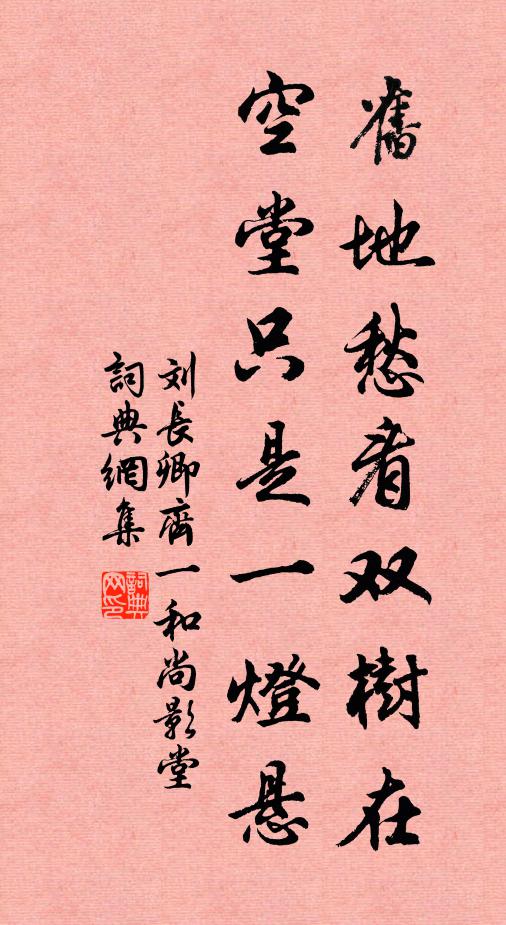 舊地愁看双樹在
空堂只是一燈悬
刘長卿齊一和尚影堂
詞典網集
詞典网印